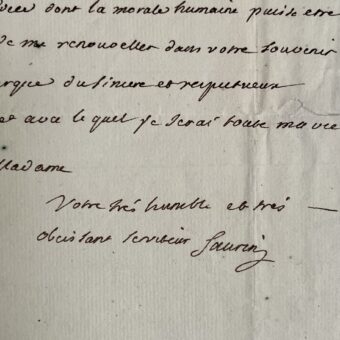 dont la morale humaine puisse etre
de me renouveller dans votre souvenir
du sincere et respectueux
et avec le quel je serai toute ma vie
Madame
Votre très humble et très —
obeissant serviteur Saurin